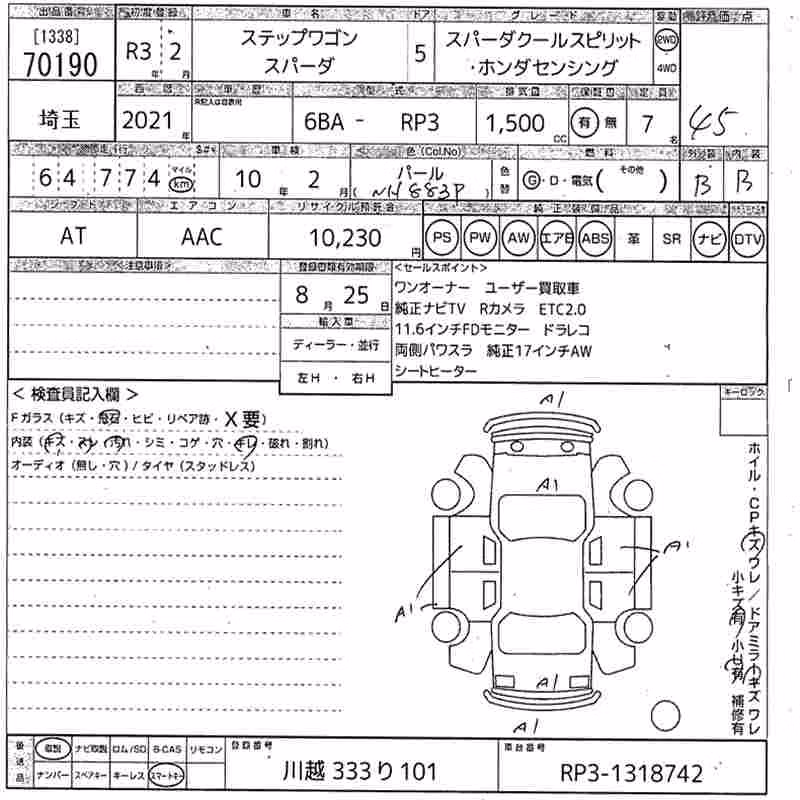 出品番号 初度登録 車名 ドア グレード 駆動 評価点
[1338] 70190 R3年 2月 ステップワゴン スパーダ 5 スパーダクールスピリット・ホンダセンシング 2WD 4WD
西暦 車歴 型式 排気量 保証書 定員 4.5
埼玉 2021年 未記入は自家用 6BA - RP3 1,500cc 有 無 7名
走行 S#キ 車検 色(Col.No) 燃料 外装 内装
64,774 マイル km 10年 2月 パール (NH883P) 色替 G・D・電気 (その他) B B
シフト エアコン リサイクル預託金 純正装備品
AT AAC 10,230円 PS PW AW エアB ABS 革 SR ナビ DTV
<注意事項> 登録書類有効期限 <セールスポイント>
8月 25日 ワンオーナー ユーザー買取車
純正ナビTV Rカメラ ETC2.0
輸入車 11.6インチFDモニター ドラレコ
ディーラー・並行 両側パワスラ 純正17インチAW
左H・右H シートヒーター
< 検査員記入欄 > キーロック
Fガラス (キズ・飛石・ヒビ・リペア跡・X要)
内装 (キズ・スレ・汚れ・シミ・コゲ・穴・キレ・破れ・割れ)
オーディオ (無し・穴) / タイヤ (スタッドレス)
A1
A1
A1
A1
A1
A1
ホイル・CPキズワレ/ドアミラーキズワレ
小キズ有/小凹有 補修有
後送品 取説 ナビ取説 ロム/SD B-CAS リモコン 登録番号 車台番号
ナンバー スペアキー キーレス スマートキー 川越 333 り 101 RP3-1318742